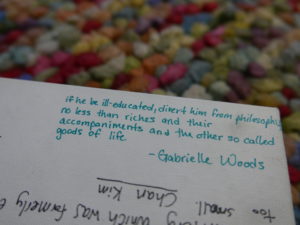 if he be ill-educated, divert him from philosophy,
no less than riches and their
accompaniments and the other so called
goods of life
- Gabrielle Woods
too small.
Chan Kim
which was formerly